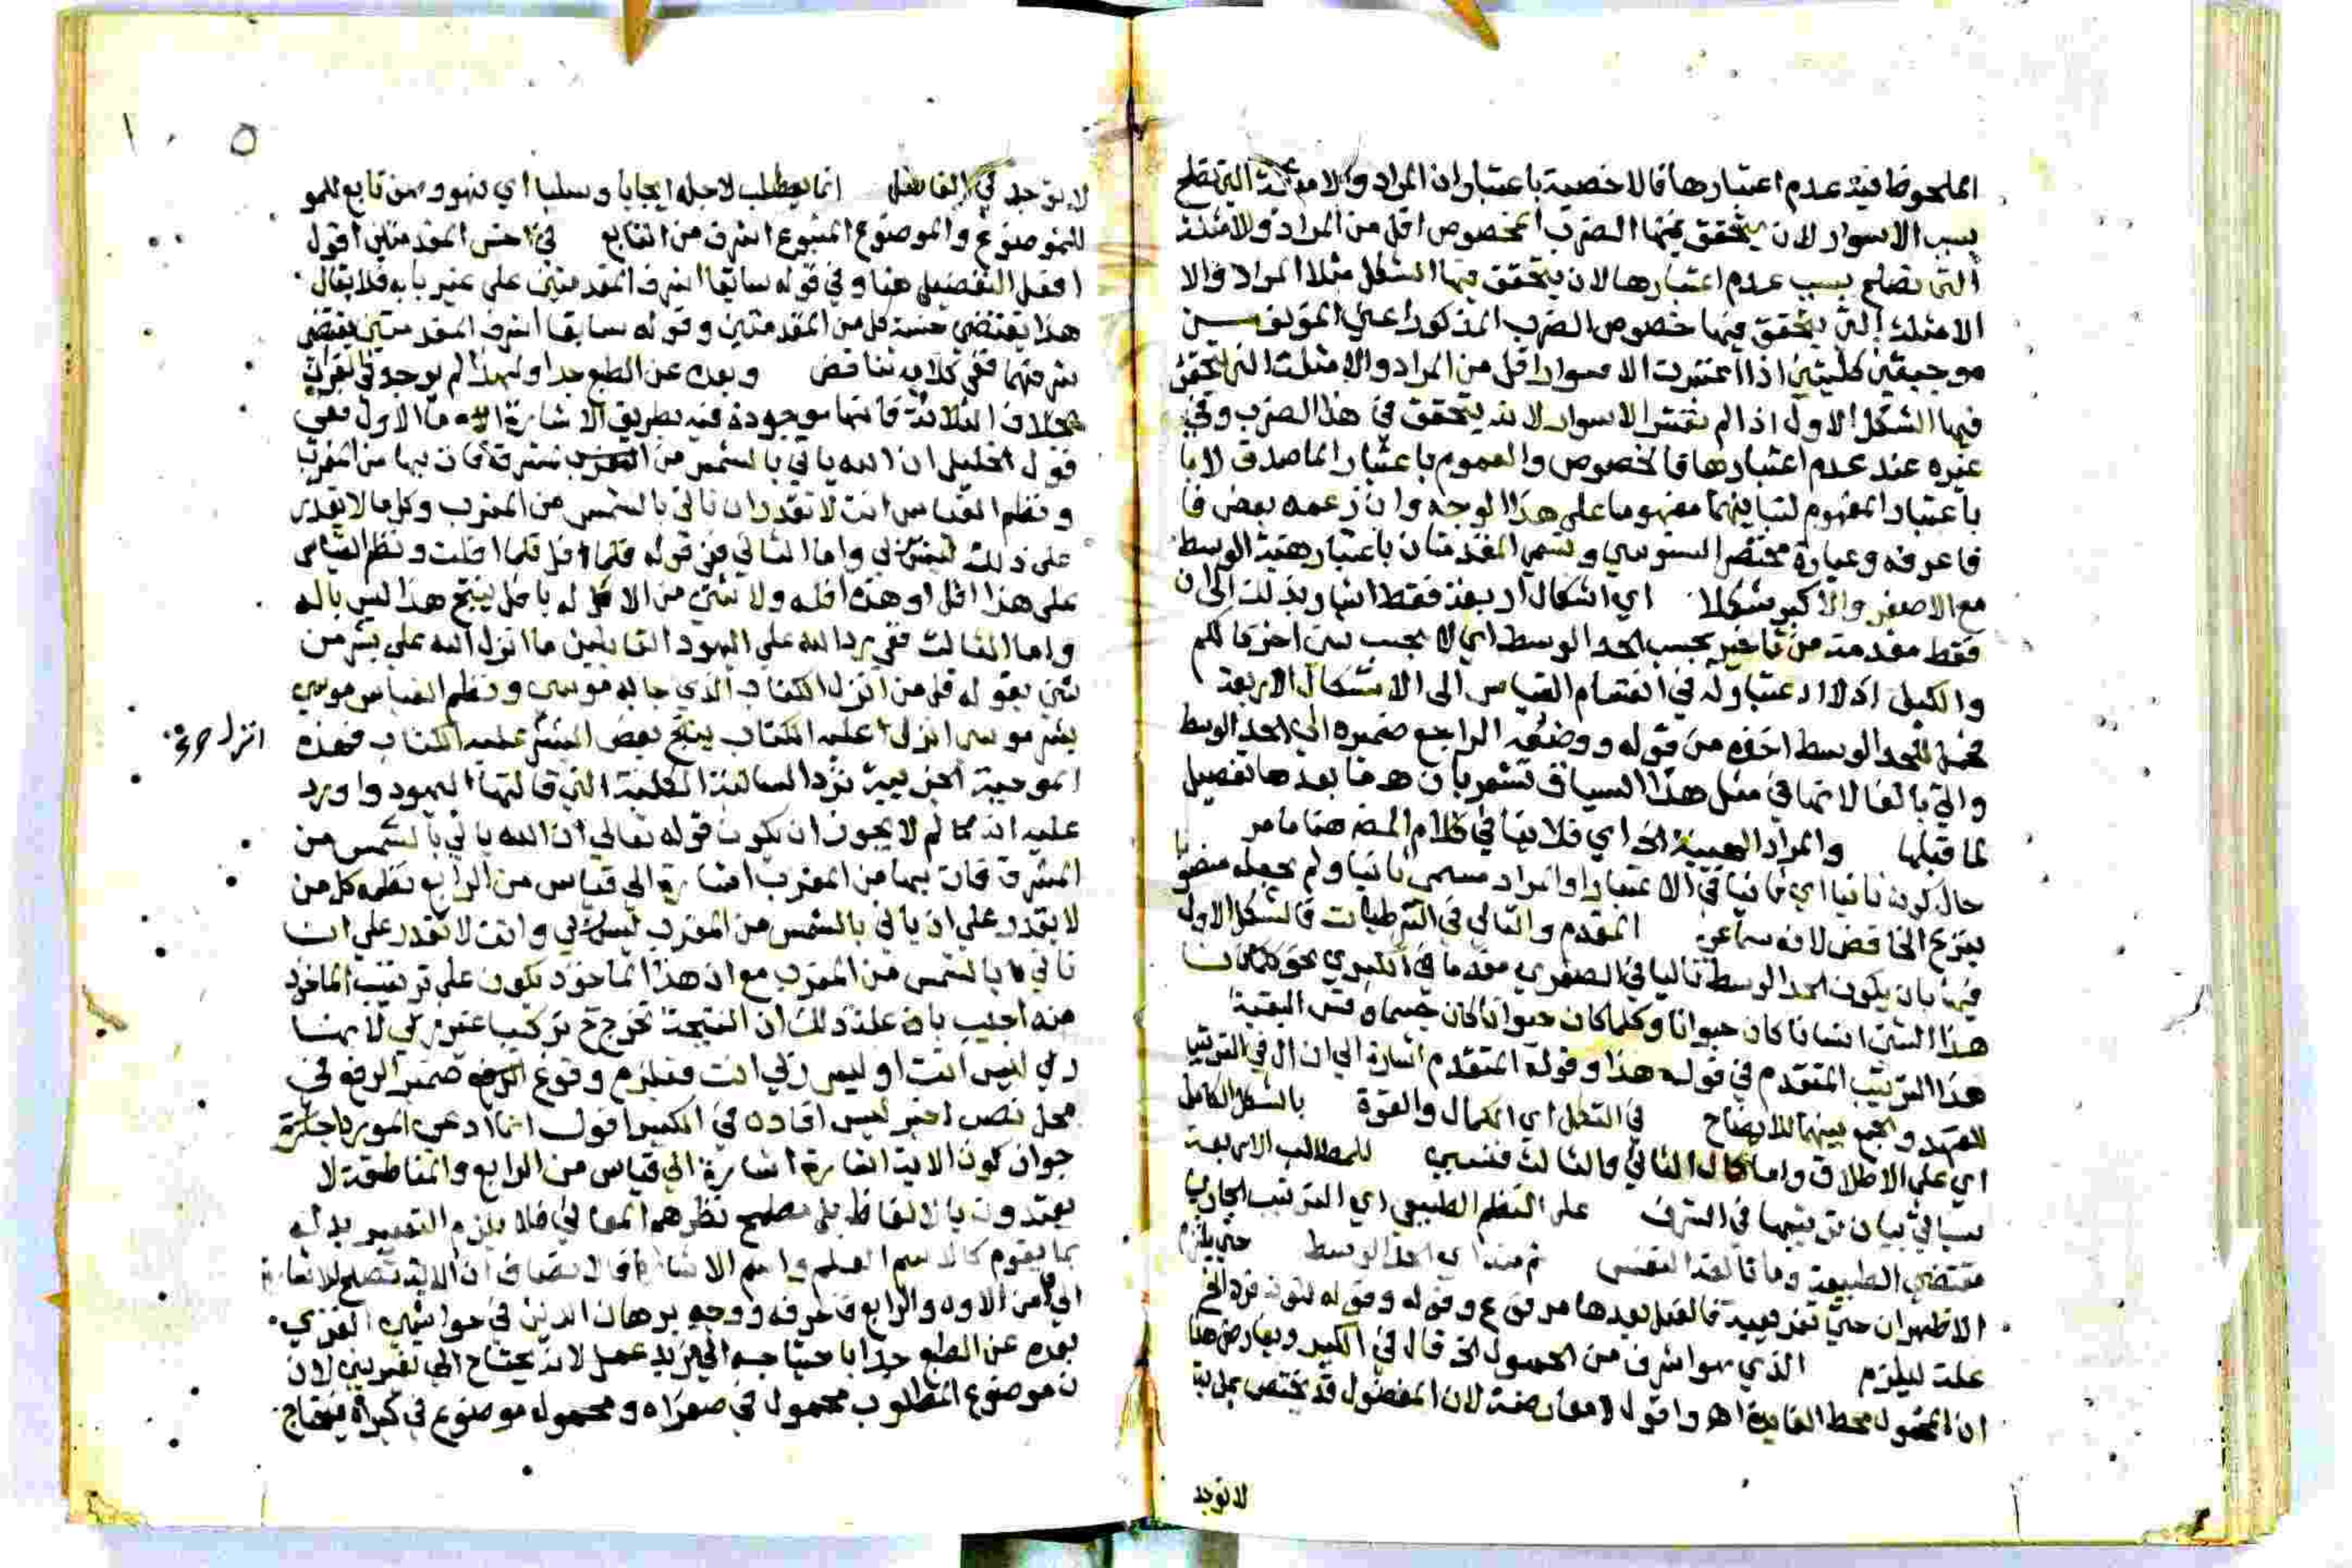 الملحوظ فيه عدم اعتبارها فالاخصية باعتبار ان المراد والامثلة التي تصلح
بسبب الاسوار لان يتحقق فيها الضرب المخصوص اقل من المراد والامثلة
التي تصلح بسبب عدم اعتبارها لان يتحقق فيها الشكل مثلا المراد والا
الامثلة التي يتحقق فيها خصوص الضرب المذكور اعني المؤلف من
موجبتين كليتين اذا اعتبرت الاسوار اقل من المراد والامثلة التي يتحقق
فيها الشكل الاول اذا لم تعتبر الاسوار لانه يتحقق في هذا الضرب وفي
غيره عند عدم اعتبارها فالخصوص والعموم باعتبار الماصدق لا با
باعتبار المفهوم لتباينهما مفهوما على هذا الوجه وان زعمه بعض فا
فاعرفه وعبارة مختصر السنوسي وتسمى المقدمتان باعتبار هيئة الوسط
مع الاصغر والاكبر شكلا اي اشكال اربعة فقط اشار بذلك الى ان
فقط مقدمة من تاخير بحسب الحد الوسط اي لا بحسب شي اخر كالكم
والكيف اذ لا اعتبار له في انقسام القياس الى الاشكال الاربعة
للحد الوسط اخذه من قوله ووضعه الراجع ضميره الى الحد الوسط
واتى بالفا لانها في مثل هذا السياق تشعر بان ما بعدها تفصيل
لما قبلها والمراد الهيئة الخ اي فلا ينافي كلام المص هنا ما مر
حال كونه ثانيا اي ثانيا في الاعتبار او المراد مسمى ثانيا ولم يجعله منصوبا
بنزع الخافض لانه سماعي المقدم والتالي في الشرطيات فالشكل الاول
فيها بان يكون الحد الوسط تاليا في الصغرى مقدما في الكبرى نحو كلما كان
هذا الشي انسانا كان حيوانا وكلما كان حيوانا كان جسما وقس البقية
هذا الترتيب المتقدم في قوله هذا وقوله المتقدم اشارة الى ان ال في الترتيب
للعهد والجمع بينهما للايضاح في التكمل اي الكمال والقوة بالشكل الكامل
اي على الاطلاق واما كمال الثاني والثالث فنسبي للمطالب الاربعة
سياتي بيان ترتيبها في الشرف على النظم الطبيعي اي الترتيب الجاري
مقتضى الطبيعة وما تالفه النفس ثم منه اي الحد الوسط حتى يلزم
الاظهر ان حتى تفريعية فالفعل بعدها مرفوع وقوله
علة ليلزم الذي هو اشرف من المحمول الخ قال في الكبير ويعارض هذا
ان المحمول محط الفايدة اهـ واقول لا معارضة لان المفضول قد يختص بمزية
لا توجد
١٠٥
لا توجد في الفاضل انما يطلب لاجله ايجابا وسلبا اي فهو وهن تابع للمو
للموضوع والموضوع المتبوع اشرف من التابع في اخس المقدمتين اقول
افعل التفضيل هنا وفي قوله سابقا اشرف المقدمتين على غير بابه فلا يقال
هذا يقتضي خسة كل من المقدمتين وقوله سابقا اشرف المقدمتين يقتضي
شرفهما ففي كلامه تناقض وبعده عن الطبع جدا ولهذا لم يوجد في القران
بخلاف الثلاثة فانها موجودة فيه بطريق الاشارة اما الاول ففي
قول الخليل ان الله ياتي بالشمس من المشرق فات بها من المغرب
ونظم القياس انت لا تقدر ان تاتي بالشمس من المغرب وكل ما لا يقدر
على ذلك ليس بربي واما الثاني ففي قوله فلما افل فلما افلت ونظم القياس
على هذا افل او هذه افلة ولا شي من الاله بافل ينتج هذا ليس باله
واما الثالث ففي رد الله على اليهود القايلين ما انزل الله على بشر من
شي بقوله قل من انزل الكتاب الذي جا به موسى ونظم القياس موسى
بشر موسى انزل عليه الكتاب ينتج بعض البشر عليه الكتاب فهذه
انزل
الموجبة الجزيية ترد السالبة الكلية التي قالتها اليهود واورد
عليه انه لم لا يجوز ان يكون قوله تعالى ان الله ياتي بالشمس من
المشرق فات بها من المغرب اشارة الى قياس من الرابع نظمه كل من
لا يقدر على ان ياتي بالشمس من المغرب ليس بربي وانت لا تقدر على ان
تاتي بالشمس من المغرب مع ان هذا الماخوذ يكون على ترتيب الماخوذ
منه اجيب بان علة ذلك ان النتيجة تخرج ح تركيبا غير عربي لانها
ربي ليس انت او ليس ربي انت فيلزم وقوع ضمير الرفع في
محل نصب خبر ليس افاده في الكبير اقول انما ادعى المورد
جواز كون الاية اشارة الى قياس من الرابع والمناطقة لا
يعتدون بالالفاظ بل مطمح نظرهم المعاني فلا يلزم التعبير بدله
بما يقوم كالاسم العلم واسم الاشارة فالانصاف ان الاية تصلح للاشارة
الى كل من الاول والرابع فاعرفه ووجه برهان الدين في حواشيه الغزي
بعده عن الطبع جدا باحتياجه الى مزيد عمل لانه يحتاج الى تغييرين لان
ن موضوع المطلوب محمول في صغراه ومحموله موضوع في كبراه فيحتاج